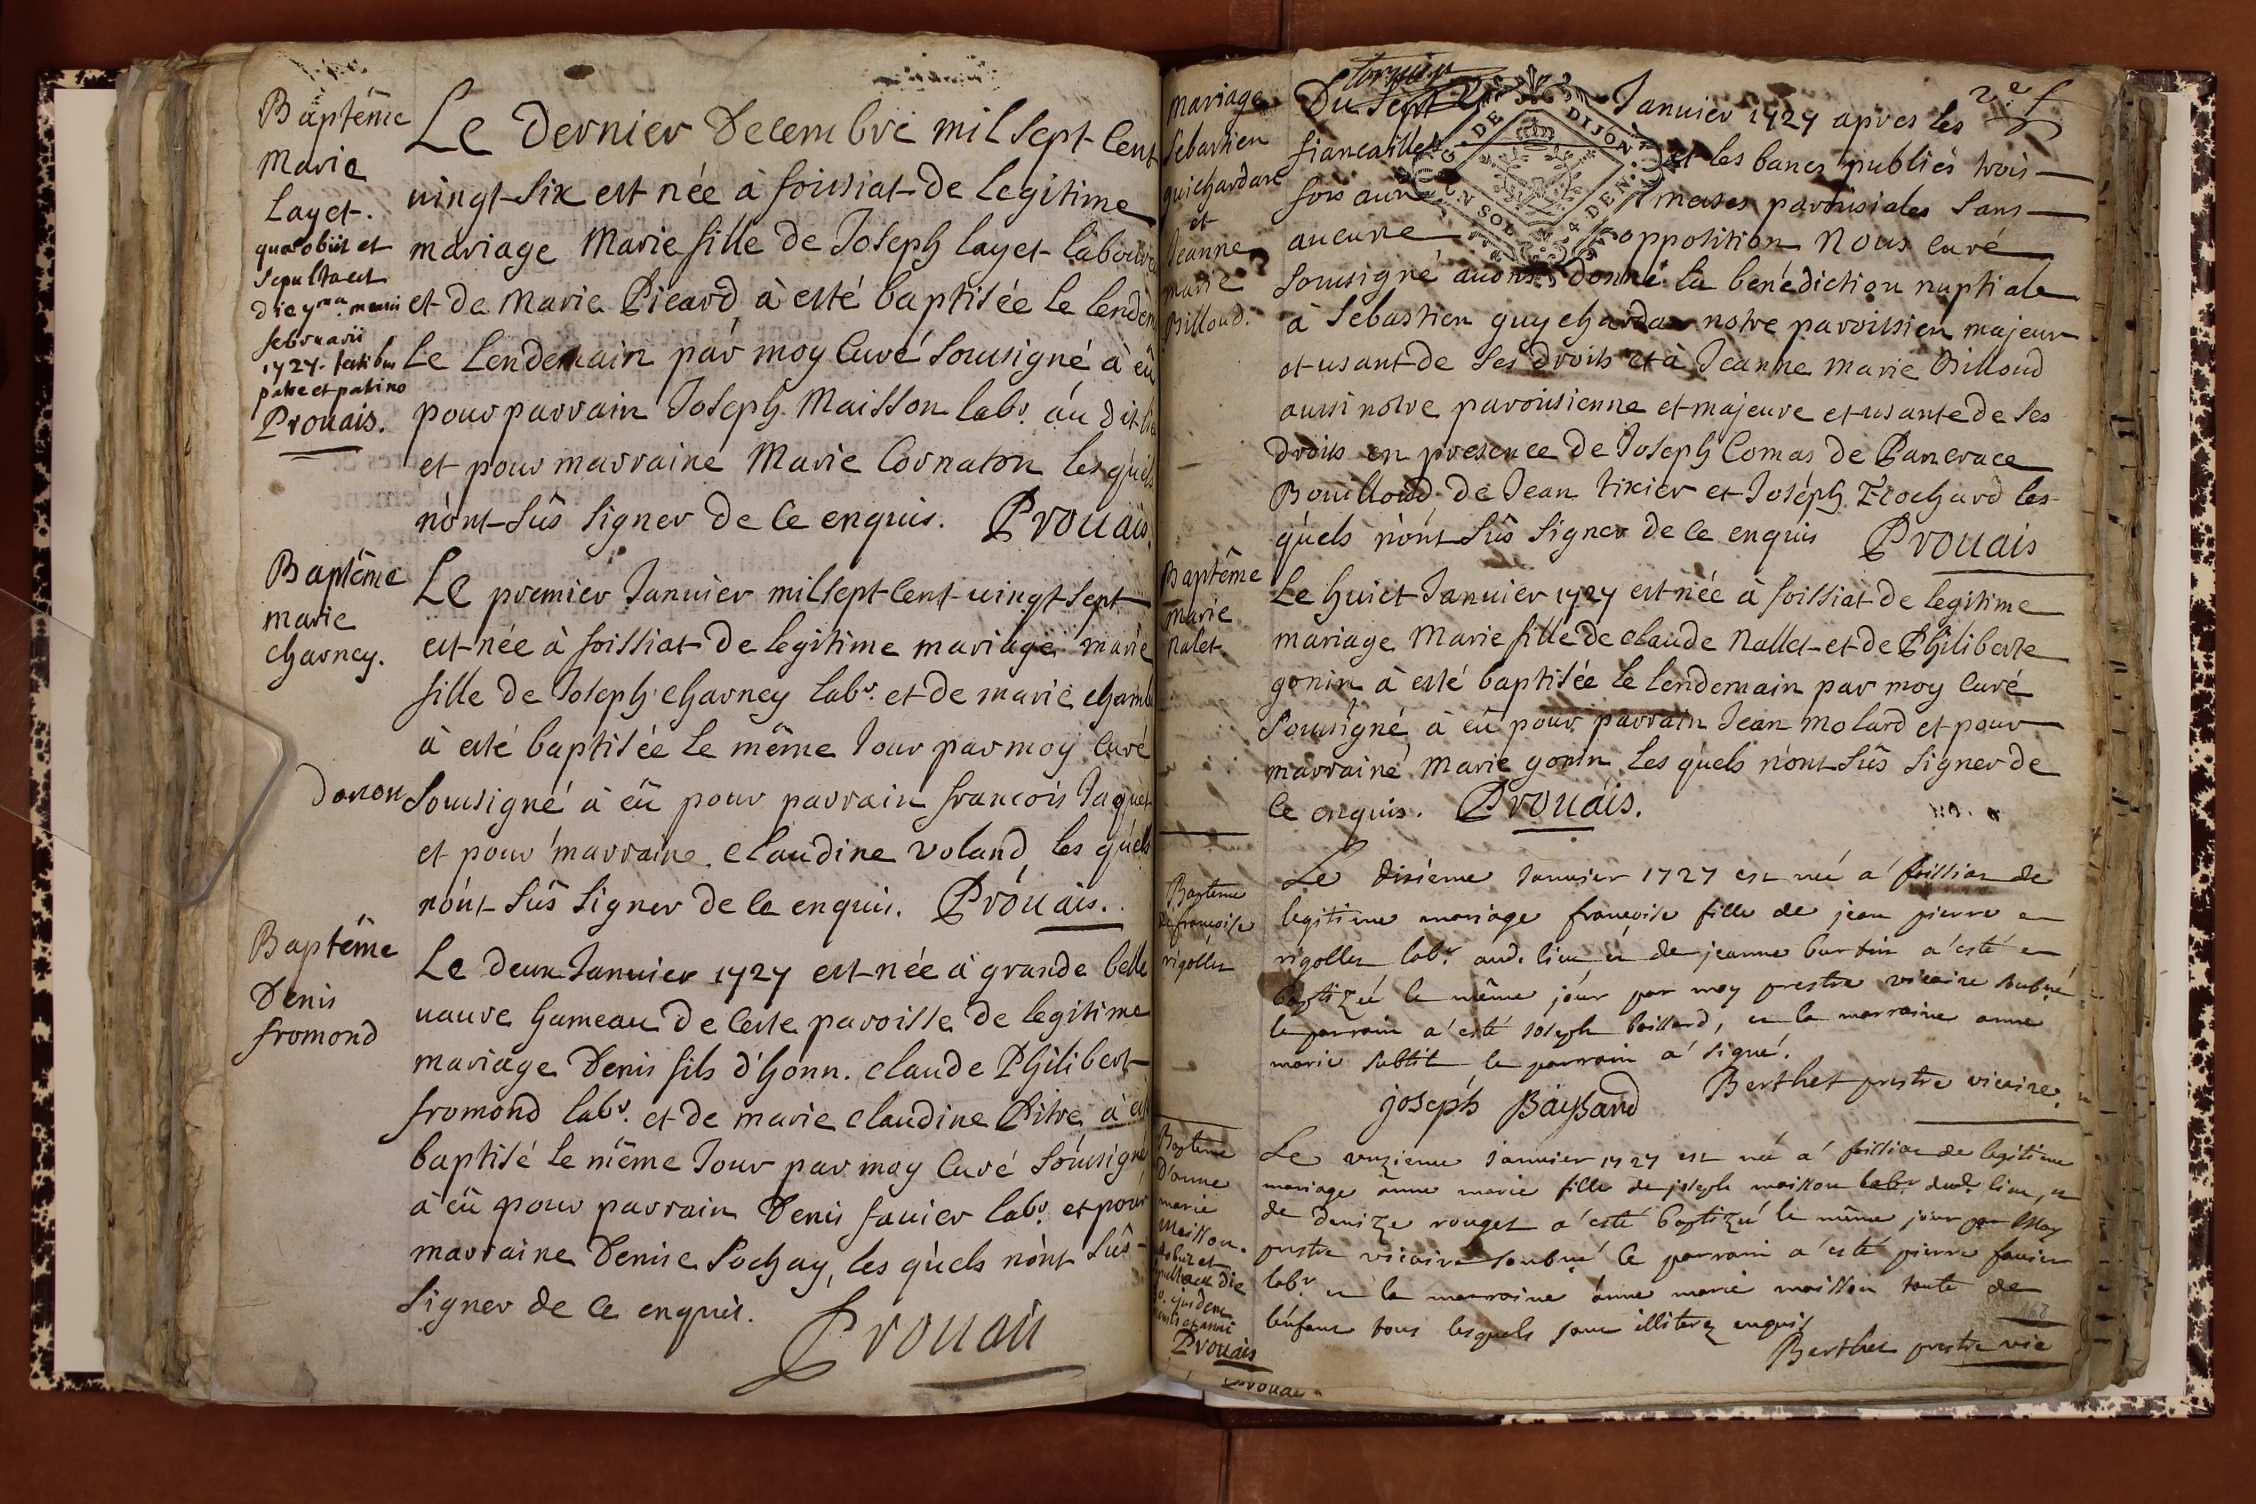 Baptême
Marie
Layet.
quae obiit et
sepulta est
die
februarii
1727.
Prouais.
Le dernier Decembre mil sept cent
uingt-six est née à foissiat de legitime
mariage Marie fille de Joseph layet
et de Marie Picard à esté baptisée le
le lendemain par moy Curé sousigné à eû
pour parrain Joseph Maisson labr. au dit
et pour marraine Marie Cornaton les quels
nònt sûs signer de ce enquis. Prouais.
Baptême
marie
charney.
Le premier Januier mil sept cent uingt sept
est née à foissiat de legitime mariage marie
fille de Joseph charney labr. et de marie
à esté baptisée le même Jour par moy Curé
sousigné à eû pour parrain francois Jaquet
et pour marraine claudine voland les quels
nònt sûs signer de ce enquis. Prouais.
Baptême
Denis
fromond
Le deux Januier 1727 est née à grande belle
uaure hameau de ceste paroisse de legitime
mariage Denis fils d'honn. claude Philibert
fromond labr. et de marie claudine Pitre à
baptisé le même Jour par moy Curé sousigné
à eû pour parrain Denis fauier labr. et pour
marraine Denise Sochay, les quels nònt sûs
signer de ce enquis.
Prouais
mariage
sebastien
guichardan
et
Jeanne
marie
Billoud.
Du sept Januier 1727 apres les
fiancailles et les bancs publiés trois
fois aux messes paroissiales sans
aucune opposition Nous Curé
sousigné auons donné la benédiction nuptiale
à Sebastien guychardan notre paroissien majeur
et usant de ses droits et à Jeanne Marie Billoud
aussi notre paroisienne et majeure et usante de ses
droits en presence de Joseph Comas de Pancrace
Bouilloud de Jean tixier et Joséph Trochard les
quels nònt sûs signer de ce enquis Prouais
GEN. DE DIJON
Baptême
marie
nalet.
Le huict Januier 1727 est née à foissiat de legitime
mariage Marie fille de claude nallet et de Philiberte
gonin à esté baptisée le lendemain par moy Curé
sousigné à eû pour parrain Jean molard et pour
marraine Marie gonin les quels nònt sûs signer de
ce enquis. Prouais.
Bapteme
de francoise
rigollet
Le dixieme Januier 1727 est né a foissiat de
legitime mariage françoise fille de jean pierre
rigollet labr. aud. lieu et de jeanne burtin a esté
baptizé le même jour par moy prestre vicaire
le parrain a esté Joseph baillard, et la marraine anne
marie subtil le parrain a signé.
joseph Bayssard Berthet prestre vicaire.
Bapteme
D'anne
marie
Maisson.
Prouais
Le onzieme Januier 1727 est né a foissiat de legitime
mariage anne marie fille de joseph maisson labr. dud. lieu, et
de denize rouget a esté baptizé le même jour par moy
prestre vicaire le parrain a esté pierre fauier
labr. et la marraine anne marie maisson tante de
l'enfant tous lesquels sont illiterez enquis
Berthet prestre vic